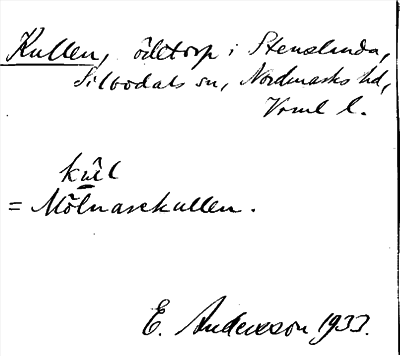 Kullen, ödetorp i Stenslunda,
Silbodals sn, Nordmarks hd,
Vrml l.
kúl
= Mölnarekullen.
E. Andersson 1933.